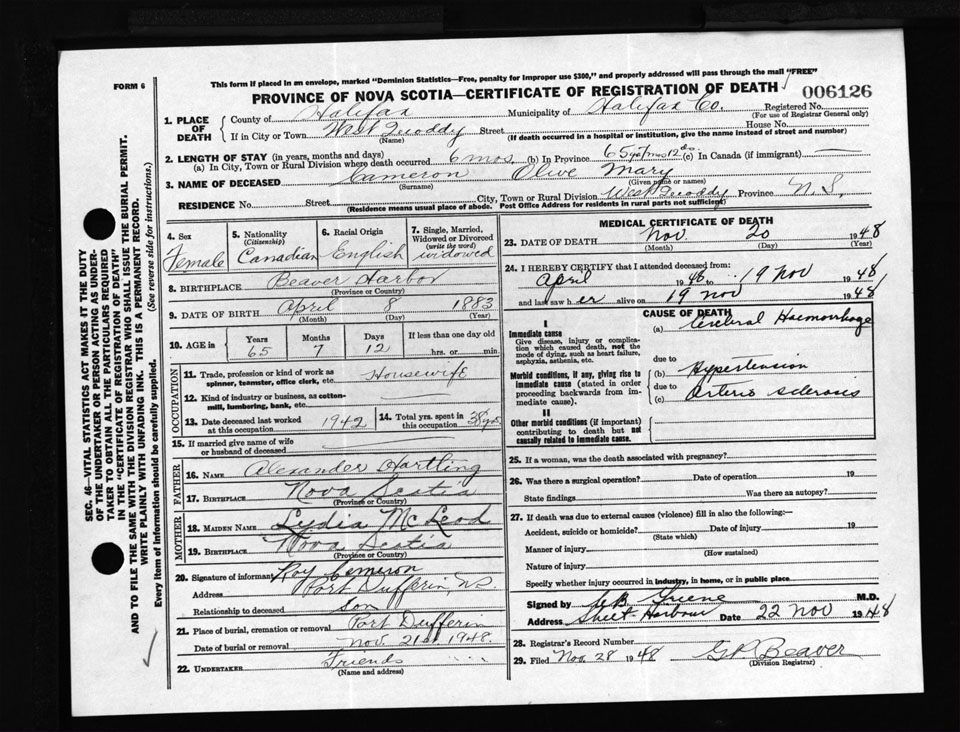 FORM 6
This form if placed in an envelope, marked "Dominion Statistics—Free, penalty for improper use $300," and properly addressed will pass through the mail "FREE"
PROVINCE OF NOVA SCOTIA—CERTIFICATE OF REGISTRATION OF DEATH
006126
1. PLACE OF DEATH
County of Halifax Municipality of Halifax Co. Registered No.
(For use of Registrar General only)
If in City or Town West Quoddy Street House No.
(Name) (If death occurred in a hospital or institution, give the name instead of street and number)
2. LENGTH OF STAY (in years, months and days)
(a) In City, Town or Rural Division where death occurred 6 mos (b) In Province 65 yrs 7 mos 12 ds (c) In Canada (if immigrant) —
3. NAME OF DECEASED Cameron Olive Mary
(Surname) (Given name or names)
RESIDENCE No. Street City, Town or Rural Division West Quoddy Province N.S.
(Residence means usual place of abode. Post Office Address for residents in rural parts not sufficient)
4. Sex Female
5. Nationality (Citizenship) Canadian
6. Racial Origin English
7. Single, Married, Widowed or Divorced (write the word) widowed
8. BIRTHPLACE Beaver Harbor
(Province or Country)
9. DATE OF BIRTH April 8 1883
(Month) (Day) (Year)
10. AGE in Years 65 Months 7 Days 12 If less than one day hrs. or min.
OCCUPATION
11. Trade, profession or kind of work as spinner, teamster, office clerk, etc. Housewife
12. Kind of industry or business, as cotton-mill, lumbering, bank, etc. —
13. Date deceased last worked at this occupation 1942
14. Total yrs. spent in this occupation 38 yrs
15. If married give name of wife or husband of deceased
FATHER
16. NAME Alexander Hartling
17. BIRTHPLACE Nova Scotia
(Province or Country)
MOTHER
18. MAIDEN NAME Lydia McLeod
19. BIRTHPLACE Nova Scotia
(Province or Country)
20. Signature of informant Roy Cameron
Address Port Dufferin, NS
Relationship to deceased Son
21. Place of burial, cremation or removal Port Dufferin
Date of burial or removal Nov. 21st 1948.
22. UNDERTAKER Friends
(Name and address)
MEDICAL CERTIFICATE OF DEATH
23. DATE OF DEATH Nov. 20 1948
(Month) (Day) (Year)
24. I HEREBY CERTIFY that I attended deceased from:
April 1946 to 19 Nov 1948
and last saw her alive on 19 Nov 1948
CAUSE OF DEATH
I
Immediate cause
Give disease, injury or complication which caused death, not the mode of dying, such as heart failure, asphyxia, asthenia, etc.
(a) Cerebral Haemorrhage
due to
Morbid conditions, if any, giving rise to immediate cause (stated in order proceeding backwards from immediate cause).
(b) Hypertension
due to
(c) Arterio sclerosis
II
Other morbid conditions (if important) contributing to death but not causally related to immediate cause.
25. If a woman, was the death associated with pregnancy?
26. Was there a surgical operation? Date of operation 19
State findings Was there an autopsy?
27. If death was due to external causes (violence) fill in also the following:—
Accident, suicide or homicide? Date of injury 19
(State which)
Manner of injury
(How sustained)
Nature of injury
Specify whether injury occurred in industry, in home, or in public place
Signed by Greene M.D.
Address Sheet Harbour Date 22 Nov 1948
28. Registrar's Record Number
29. Filed Nov. 28 1948 Beaver
(Division Registrar)
SEC. 46—VITAL STATISTICS ACT MAKES IT THE DUTY
OF THE UNDERTAKER OR PERSON ACTING AS UNDER-
TAKER TO OBTAIN ALL THE PARTICULARS REQUIRED
IN THE "CERTIFICATE OF REGISTRATION OF DEATH"
AND TO FILE THE SAME WITH THE DIVISION REGISTRAR WHO SHALL ISSUE THE BURIAL PERMIT.
WRITE PLAINLY WITH UNFADING INK. THIS IS A PERMANENT RECORD.
Every item of information should be carefully supplied. (See reverse side for instructions.)